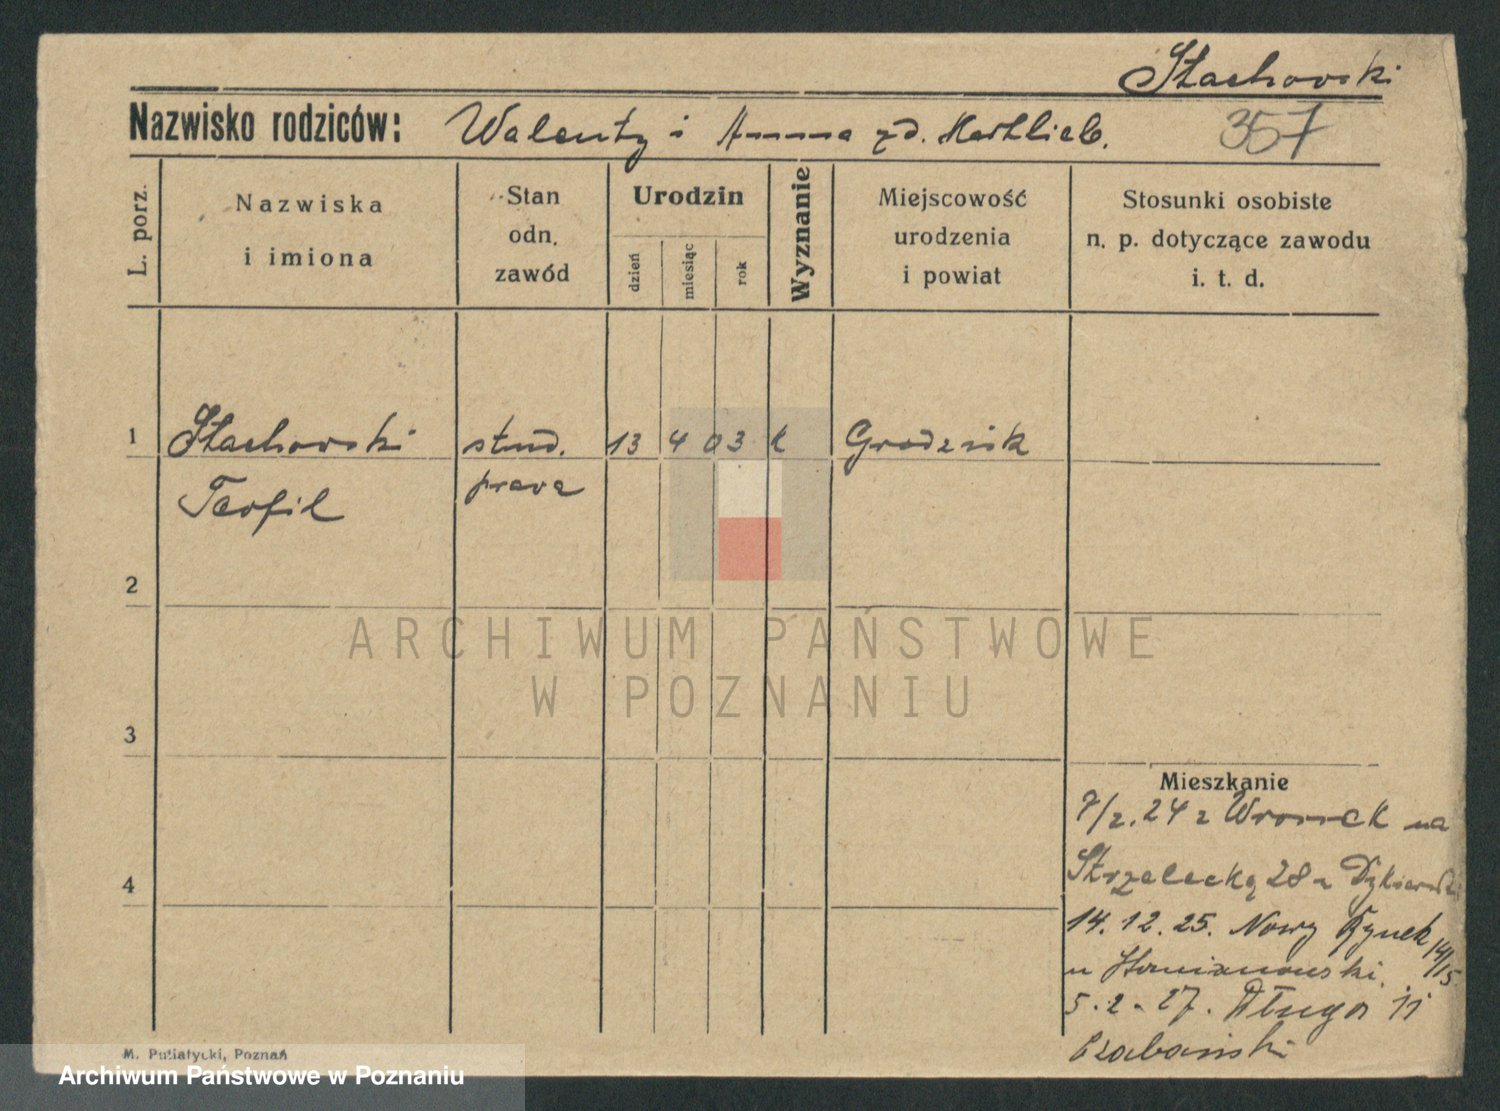 Stachowski
Nazwisko rodziców: Walenty i Anna zd. Hertlieb.
357
L. porz.
Nazwiska
i imiona
Stan
odn.
zawód
Urodzin
dzień
miesiąc
rok
Wyznanie
Miejscowość
urodzenia
i powiat
Stosunki osobiste
n. p. dotyczące zawodu
i. t. d.
1
Stachowski
Teofil
stud.
prawa
13 4 03 k
Grodzisk
2
3
4
ARCHIWUM PAŃSTWOWE
W POZNANIU
Mieszkanie
7/2.24 z Wronek na
Strzelecką 28 u
14.12.25. Nowy Rynek 14/15
u
5.2-27. Długa 11
M. Putiatycki, Poznań
Archiwum Państwowe w Poznaniu